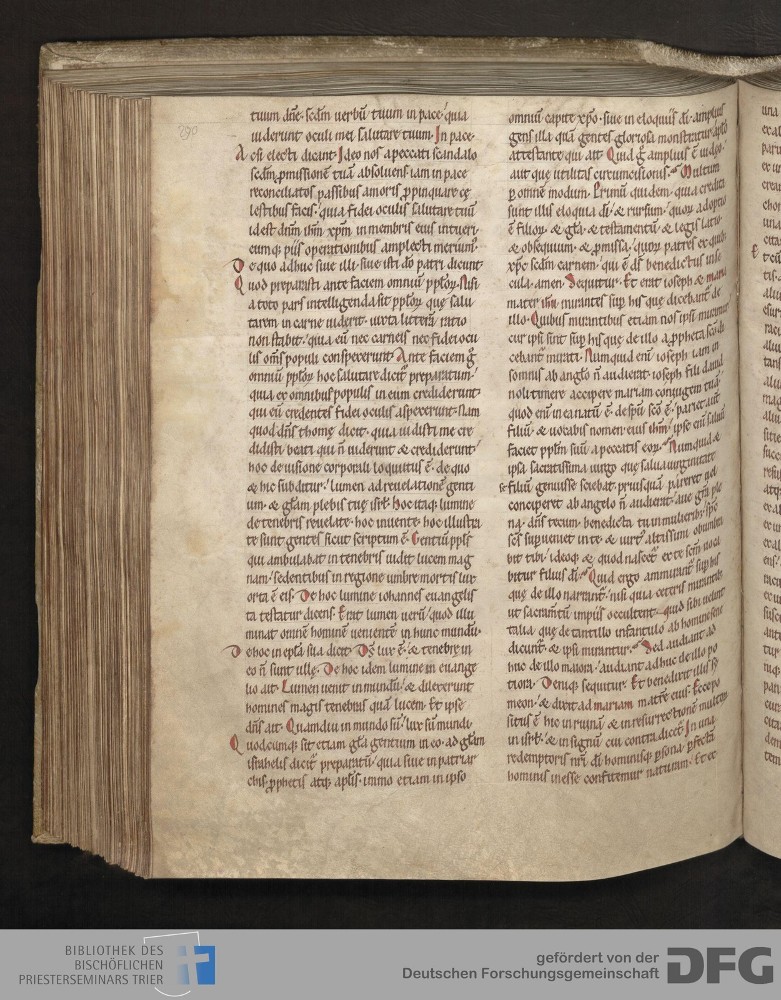 290
tuum dñe· scdm uerbũ tuum in pace· quia
uiderunt oculi mei salutare tuum· In pace·
Ac si electi dicant· Ideo nos a peccati scandalo
scdm ꝓmissionẽ tuã absoluens iam in pace
reconciliatos passibus amoris ꝓpinquare cę
lestibus facis· quia fidei oculis salutare tuũ
id est dñm ihm xpm in membris eius intueri·
eumq; piis operationibus amplecti
De quo adhuc siue illi· siue isti dõ patri dicunt·
Quod preparasti ante faciem omniũ pplor̃· Nisi
a toto pars intelligenda sit pplor̃· quę salu
tarem in carne uiderit· iuxta litterã ratio
non stabit· quia eũ nec carneis nec fidei ocu
lis om̃s populi conspexerunt· Ante faciem g̊
omniũ pplor̃ hoc salutare dicit̃ preparatum·
quia ex omnibus populis in eum crediderunt·
qui eũ credentes fidei oculis aspexerunt· Nam
quod dñs thomę dicit· quia uidisti me cre
didisti· beati qui ñ uiderunt & crediderunt·
hoc de uisione corporali loquutus ẽ· de quo
& hic subditur· lumen ad reuelationẽ genti
um· & glãm plebis tuę isrł· Hoc itaq; lumine
de tenebris reuelate· hoc inuente· hoc illustra
te sunt gentes sicut scriptum ẽ· Gentiũ ppls̃
qui ambulabat in tenebris uidit lucem mag
nam· sedentibus in regione umbre mortis lux
orta ẽ eis· De hoc lumine iohannes euangelis
ta testatur dicens· Erat lumen uerũ· quod illu
minat omnẽ hominẽ uenientẽ in hunc mundũ·
De hoc in epła sua dicit· Ds̃ lux ẽ· & tenebrę in
eo ñ sunt ullę· De hoc idem lumine in euange
lio ait· Lumen uenit in mundũ· & dilexerunt
homines magis tenebras quã lucem· Et ipse
dñs ait· Quamdiu in mundo sũ· lux sũ mundi·
Quodcumq; sit etiam glã gentium in eo· ad glãm
israhelis dicit̃ preparatũ· quia siue in patriar
chis ꝓphetis atq; apłis· immo etiam in ipso
omniũ capite xpo· siue in eloquiis di· amplius
gens illa quã gentes gloriosa monstratur· apło
attestante qui ait· Quid g̊ amplius ẽ iudęo·
aut que utilitas circumcisionis· Multum
ꝑ omnẽ modum· Primũ quidem· quia credita
sunt illis eloquia di· & rursum· quor̃ adoptio
ẽ filior̃· & glã· & testamentũ· & legis latio·
& obsequium· & ꝓmissa· quor̃ patres ex quib;
xpc scdm carnem· qui ẽ ds̃ benedictus in se
cula· amen· Sequitur· Et erat ioseph & maria
mater ihu mirantes sup his quę dicebant̃ de
illo· Quibus mirantibus etiam nos ipsi miramur
cur ipsi sint sup his quę de illo a ꝓpheta scõ di
cebant̃ mirati· Numquid enĩ ioseph iam in
somnis ab angło ñ audierat· ioseph fili dauid
noli timere accipere mariam coniugem tuã·
quod enĩ in ea natũ ẽ· de spũ scõ ẽ· pariet aut̃
filiũ· & uocabis nomen eius ihm· ipse enĩ saluũ
faciet ppłm suũ a peccatis eor̃· Numquid &
ipsa sacratissima uirgo quę salua uirginitate
se filiũ genuisse sciebat· priusquã pareret uel
conciperet ab angelo ñ audierat· aue grã ple
na· dñs tecum· benedicta tu in mulierib;· sps̃
scs̃ sup ueniet in te· & uirt̃ altissimi obumbra
bit tibi· ideoq; & quod nascet̃ ex te scm̃ uoca
bitur filius di· Quid ergo ammirant̃ sup his
quę de illo narrant̃· nisi quia ceteris mirantib;
ut sacram̃tũ impiis occultent· quod sibi
talia quę de tantillo infantulo ab hominib;
dicunt̃· & ipsi mirantur· Sed audiant ad
huc de illo maiora· audiant adhuc de illo po
tiora· Deniq; sequitur· Et benedixit illis sy
meon· & dixit ad mariam matrẽ eius· Ecce po
situs ẽ hic in ruinã & in resurrectionẽ multor̃
in isrł· & in signũ cui contradicet̃· In una
redemptoris nr̃i di hominisq; ꝑsona ꝑfectã
hominis inesse confitemur naturam· Et ex
BIBLIOTHEK DES
BISCHÖFLICHEN
PRIESTERSEMINARS TRIER
gefördert von der
Deutschen Forschungsgemeinschaft
DFG